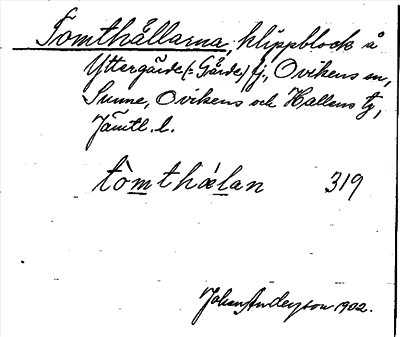 Tomthällarna, klippblock å
Yttergärde (= Gärde) fj, Ovikens sn,
Sunne, Ovikens och Hallens tg,
Jämtl. l.
tòmthælan 319
Johan Anderson 1902.